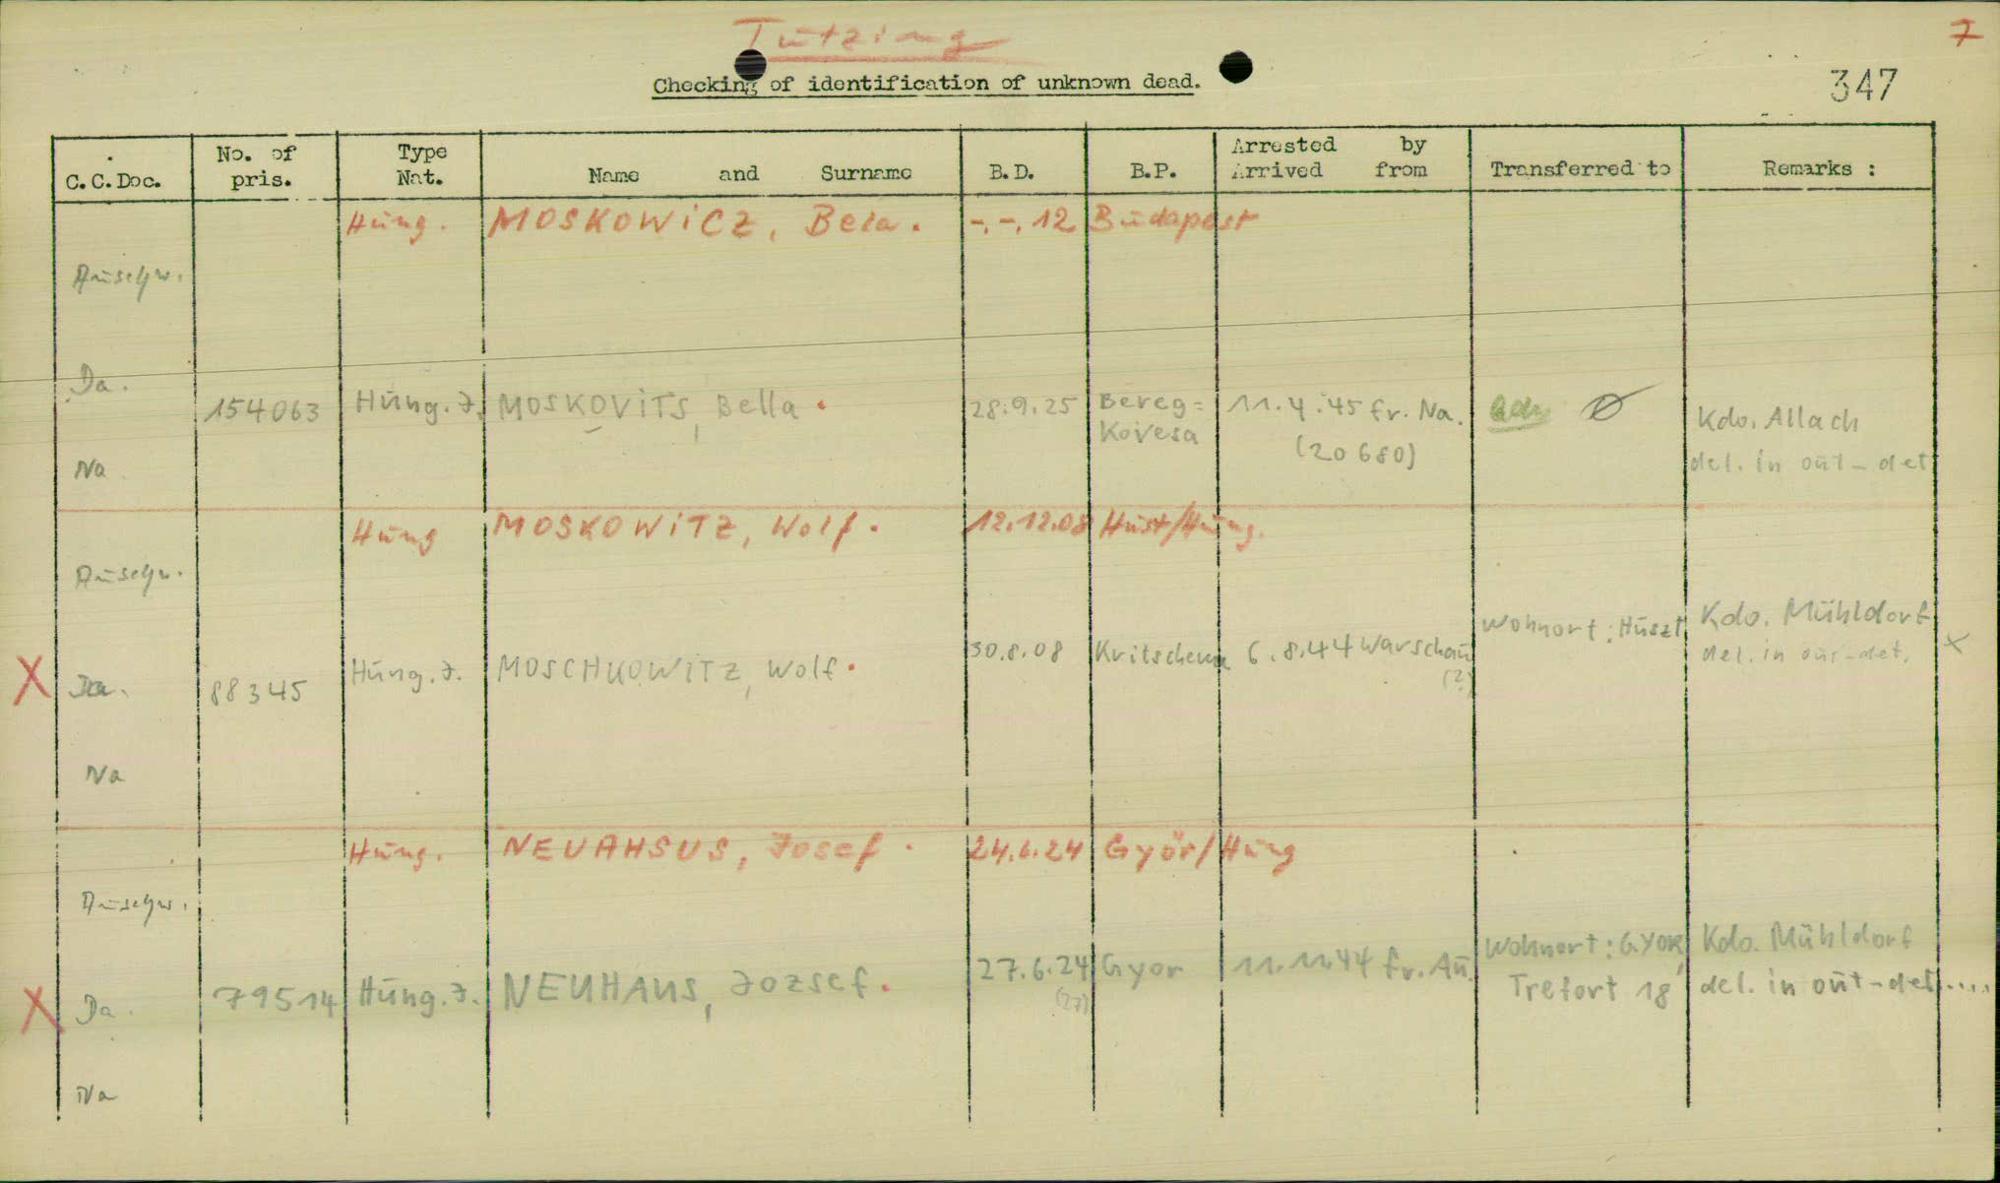 Tutzing
7
Checking of identification of unknown dead.
347
C.C.Doc. No. of pris. Type Nat. Name and Surname B.D. B.P. Arrested by Arrived from Transferred to Remarks :
Hung. MOSKOWICZ, Bela. -.-.12 Budapest
Auschw.
Da.
154063 Hung. J. MOSKOVITS, Bella. 28.9.25 Bereg= 11.4.45 fr. Na. Kdo. Allach
Kovesa (20680) del. in out-det
Na
Hung MOSKOWITZ, Wolf. 12.12.08 Hust/Hung.
Auschw.
Wohnort: Huszt Kdo. Mühldorf
X Da. 88345 Hung. J. MOSCHKOWITZ, Wolf. 30.8.08 6.8.44 Warschau del. in out-det. X
(?)
Na
Hung. NEUAHSUS, Josef. 24.6.24 Györ/Hung
Auschw.
Wohnort: GYOR, Kdo. Mühldorf
X Da. 79514 Hung. J. NEUHAUS, Jozsef. 27.6.24 Gyor 11.11.44 fr. Au. Trefort 18 del. in out-det....
(27)
Na